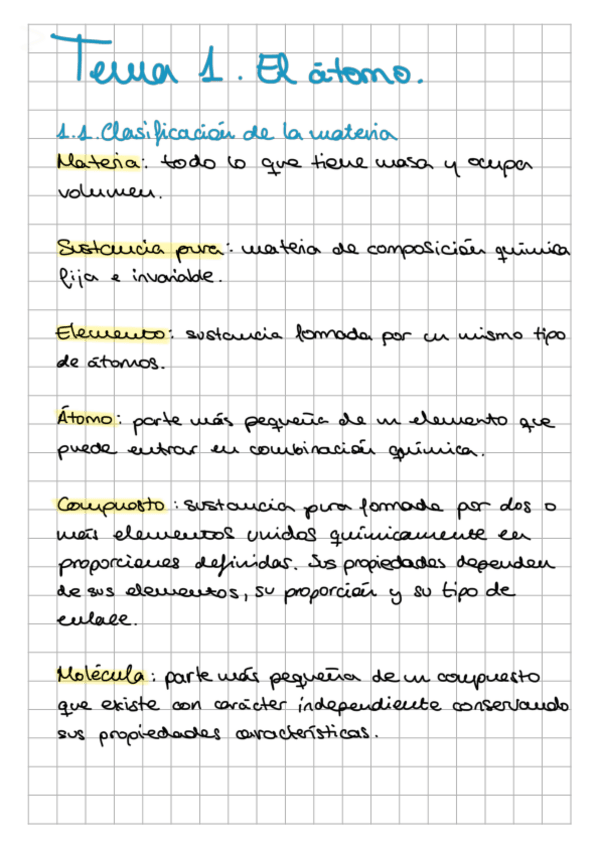 Tema 1. El átomo.
1.1. Clasificación de la materia
Materia: todo lo que tiene masa y ocupa
volumen.
Sustancia pura: materia de composición química
fija e invariable.
Elemento: sustancia formada por un mismo tipo
de átomos.
Átomo: parte más pequeña de un elemento que
puede entrar en combinación química.
Compuesto: sustancia pura formada por dos o
más elementos unidos químicamente en
proporciones definidas. Sus propiedades dependen
de sus elementos, su proporción y su tipo de
enlace.
Molécula: parte más pequeña de un compuesto
que existe con carácter independiente conservando
sus propiedades características.